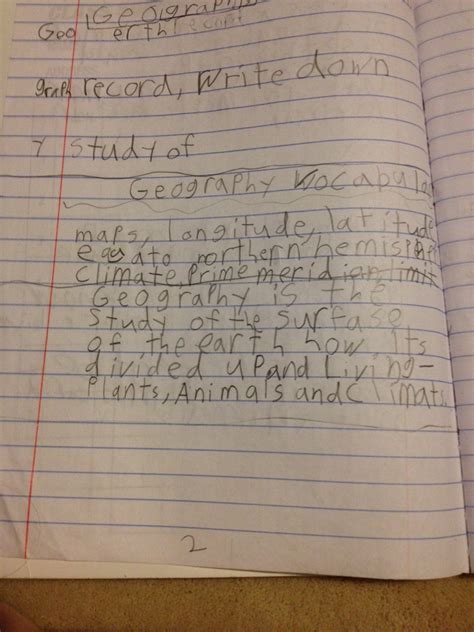 Geography
Goo erth
graph record, Write down
y study of
Geography Vocabular
maps, longitude, latitude
eqgato northern hemispher
Climate, Prime meridian, limit
Geography is the
Study of the surfase
of the earth how Its
divided up and Living-
Plants, Animals and Climats
2